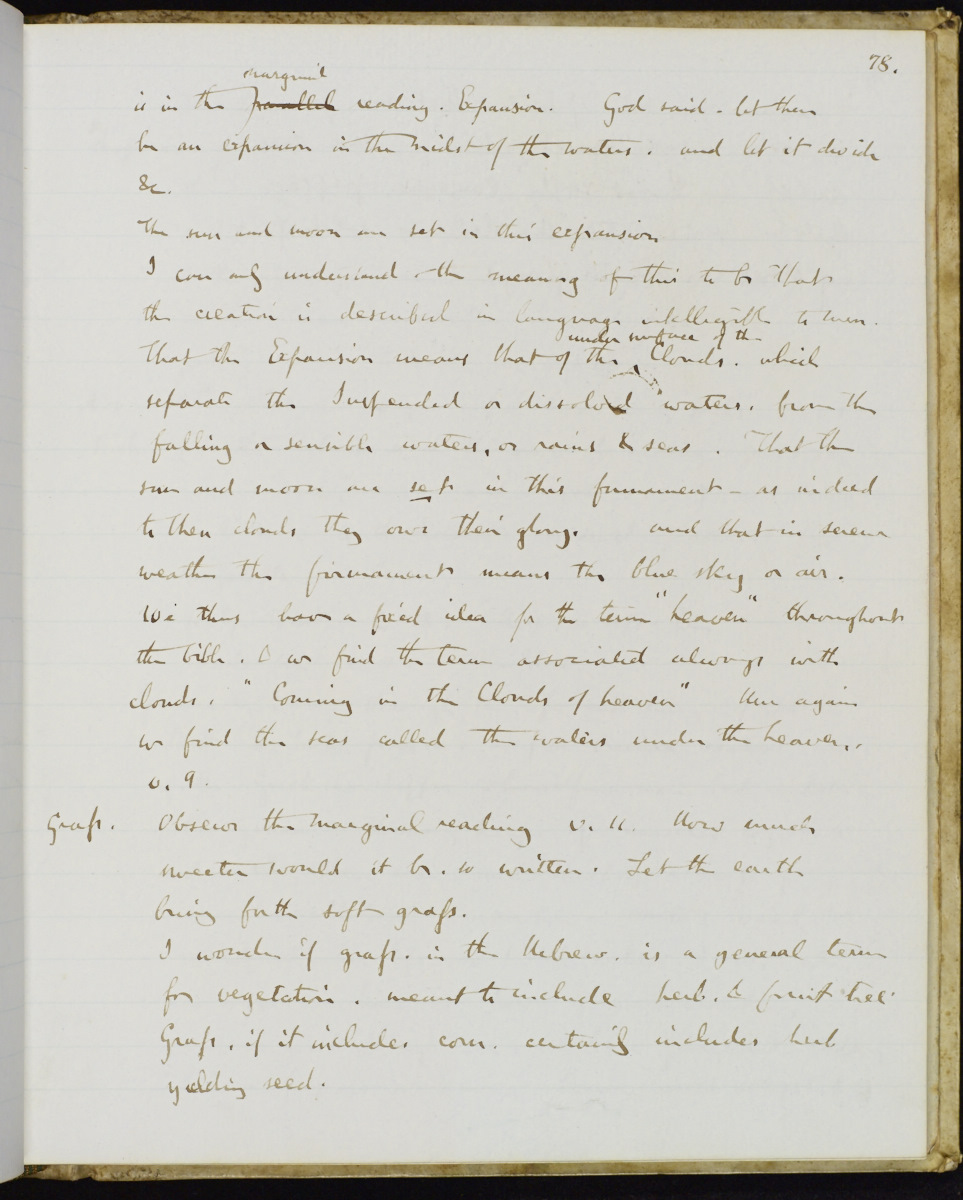 78.
marginal
is in the parallel reading. Expansion. God said - let there
be an expansion in the midst of the waters. and let it divide
&c.
The sun and moon are set in this expansion
I can only understand the meaning of this to be that
the creation is described in language intelligible to men.
under surface of the
That the Expansion means that of the Clouds. which
separate the Suspended or dissolved waters. from the
falling or sensible waters, or rains & seas. That the
sun and moon are set in this firmament - as indeed
to these clouds they owe their glory. and that in serene
weather the firmament means the blue sky or air.
We thus have a fixed idea for the term "heaven" throughout
the bible. & we find the term associated always with
clouds. "Coming in the Clouds of heaven" Here again
we find the seas called the waters under the heaven.
v. 9.
Grass. Observe the marginal reading v. 11. How much
sweeter would it be. so written. Let the earth
bring forth soft grass.
I wonder if grass. in the Hebrew. is a general term
for vegetation. meant to include herb. & fruit tree
Grass. if it includes corn. certainly includes herb
yielding seed.